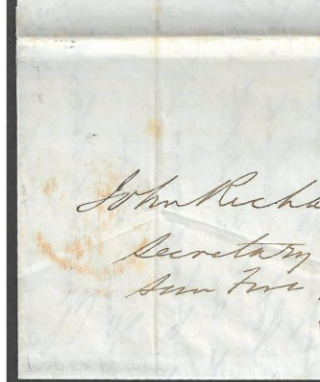 John Richa
Secretary
Sun Fire